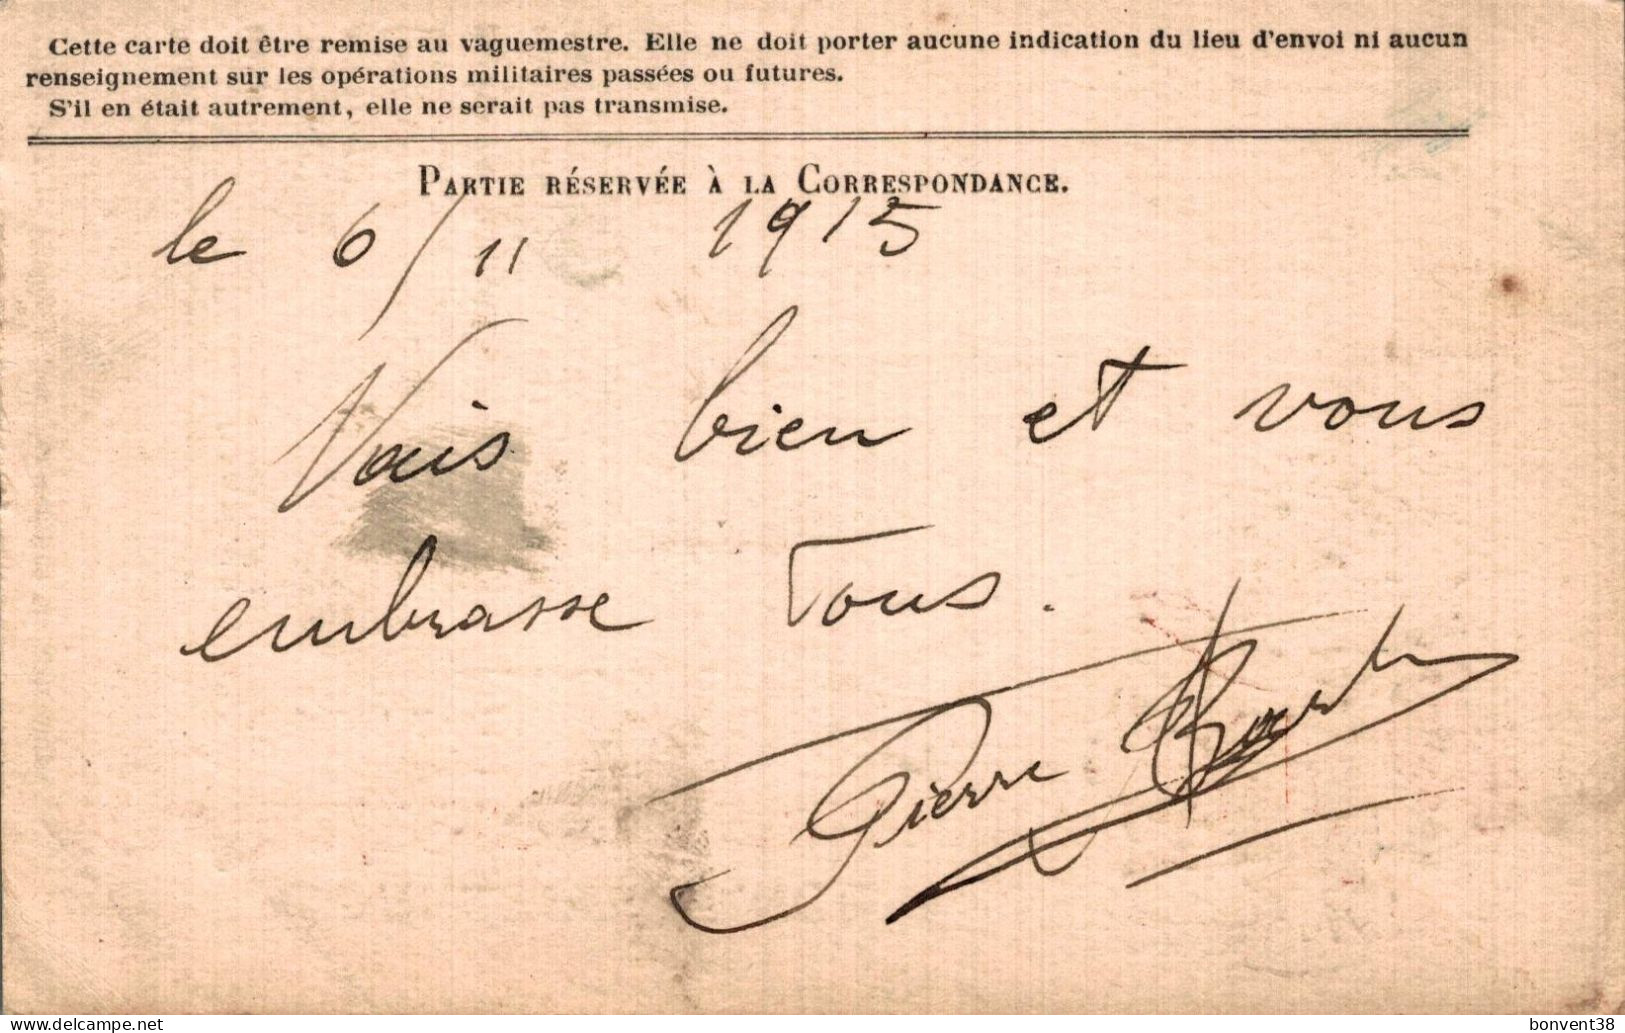 Cette carte doit être remise au vaguemestre. Elle ne doit porter aucune indication du lieu d'envoi ni aucun
renseignement sur les opérations militaires passées ou futures.
S'il en était autrement, elle ne serait pas transmise.
PARTIE RÉSERVÉE À LA CORRESPONDANCE.
le 6/11 1915
Vais bien et vous
embrasse Tous.
Pierre
bonvent38